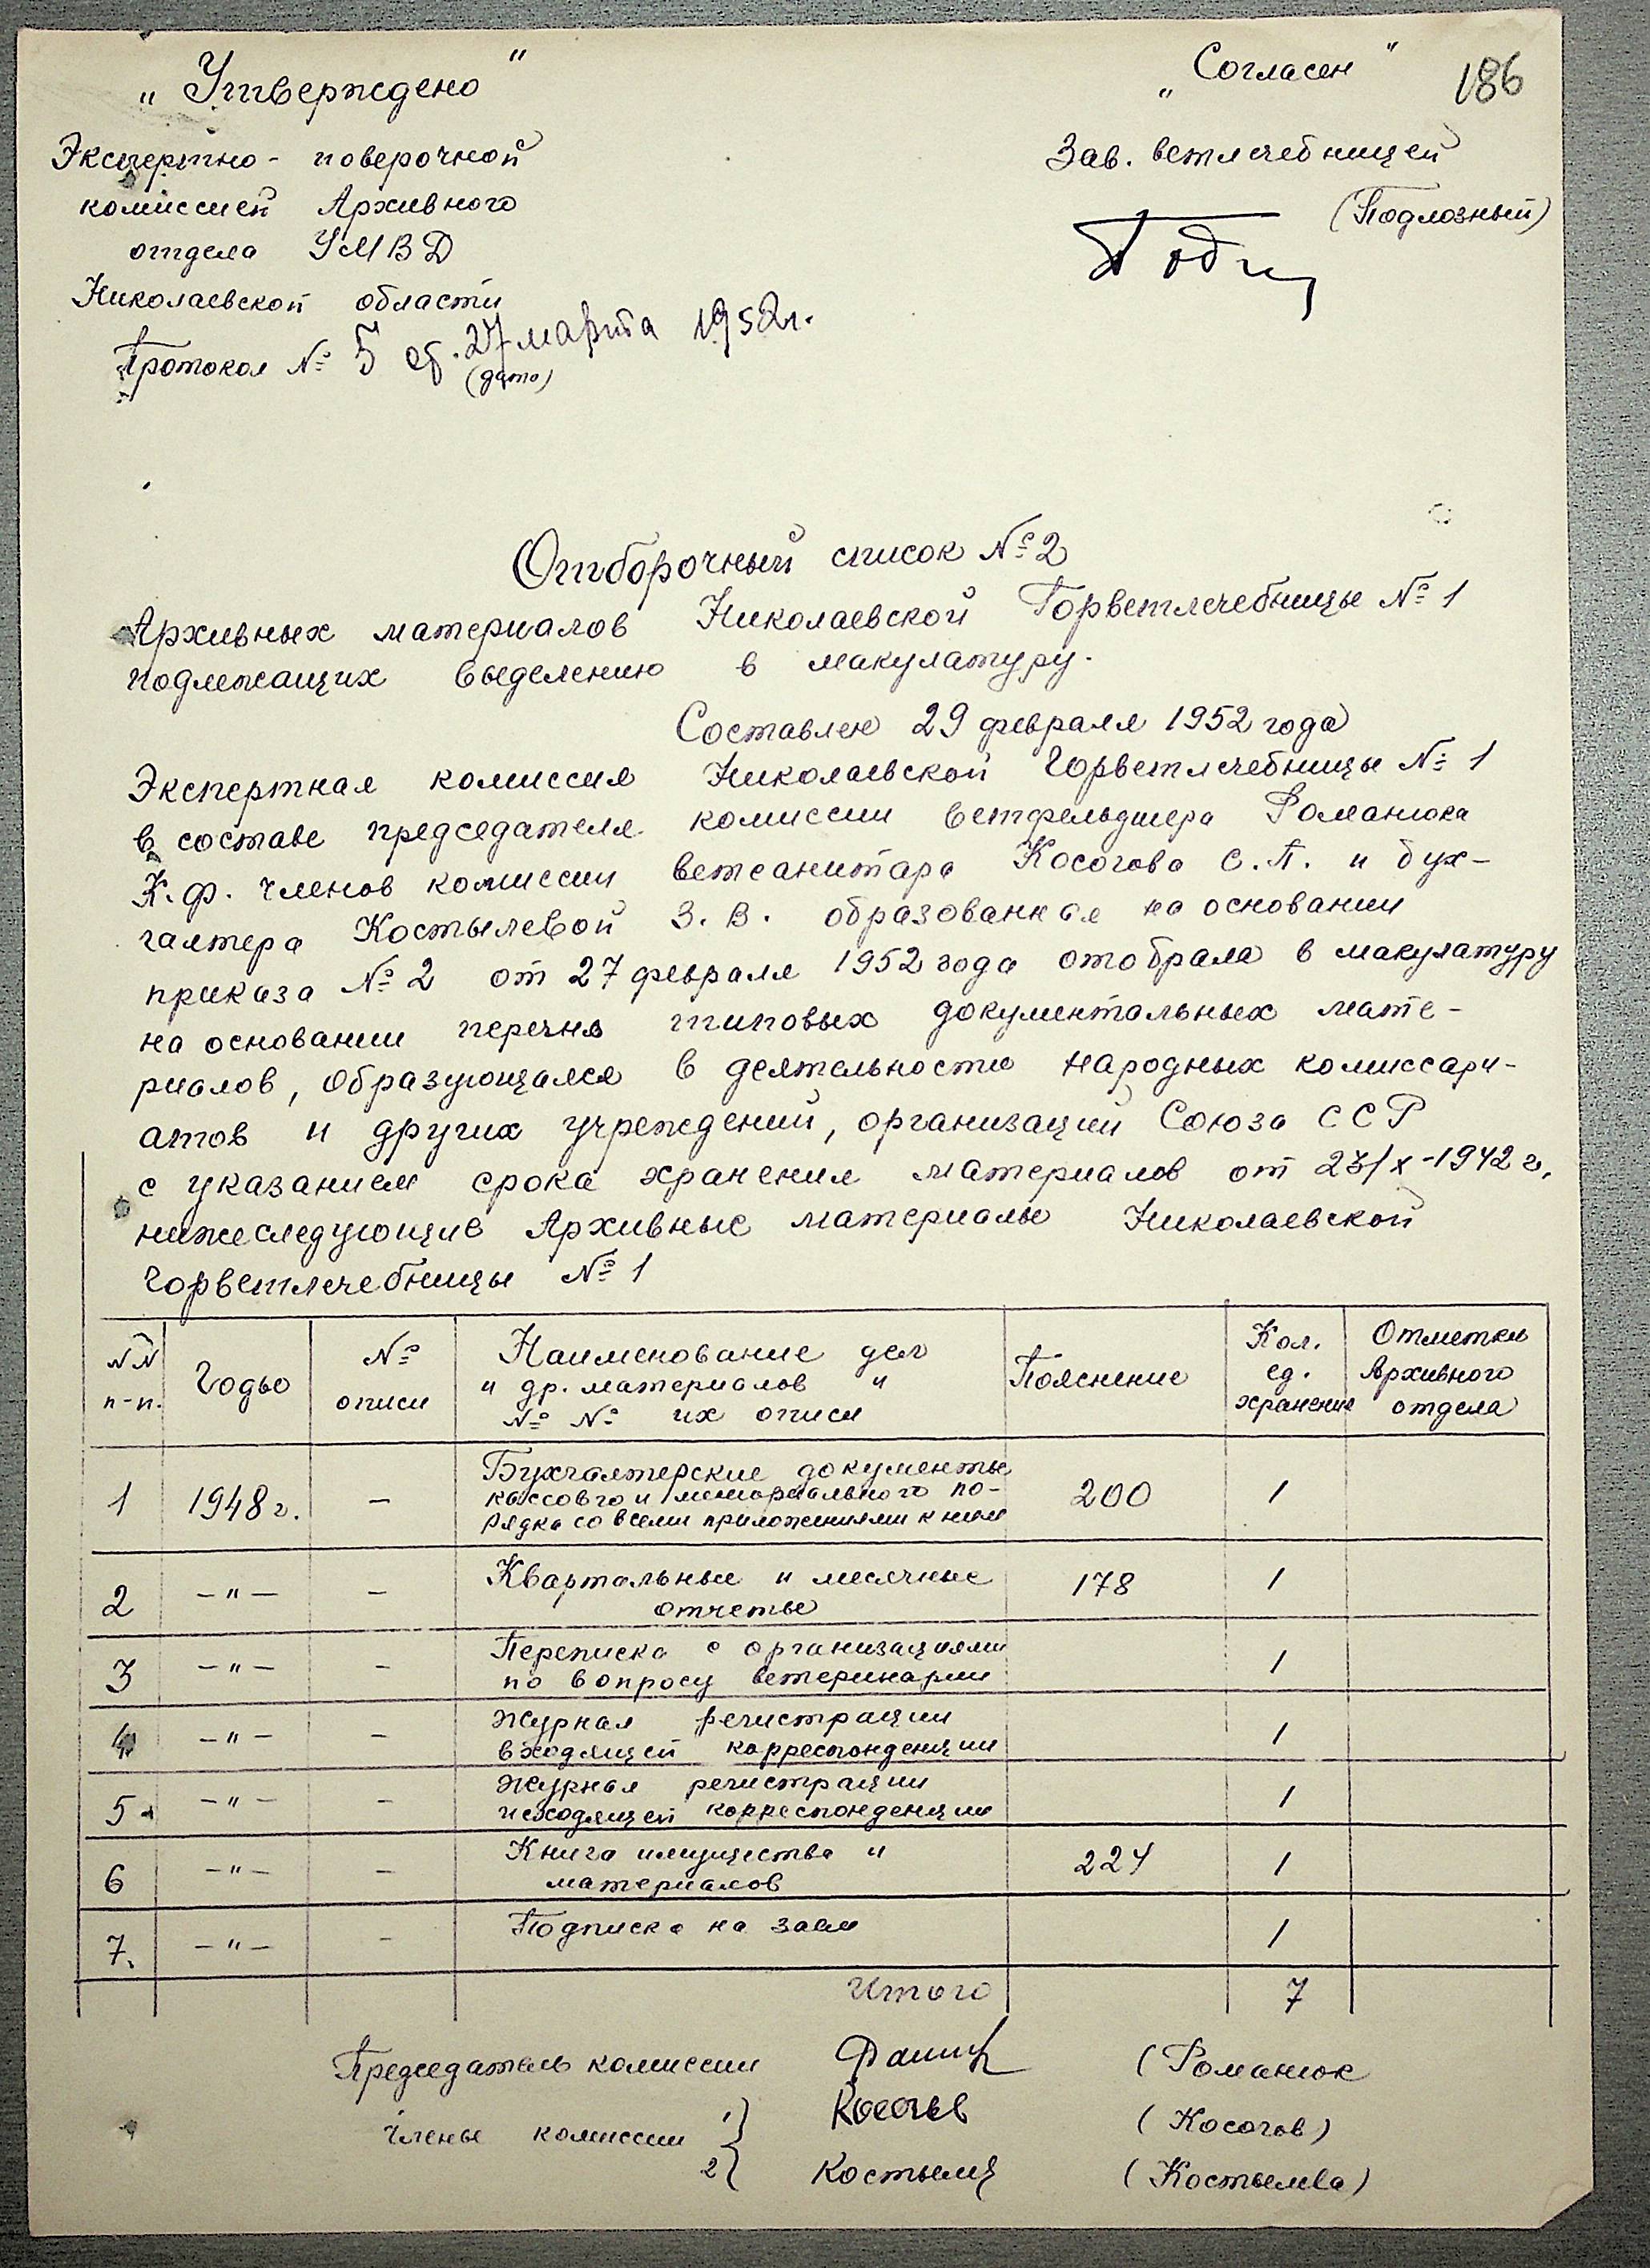 „Утверждено"
Экспертно-поверочной
комиссией Архивного
отдела УМВД
Николаевской области
Протокол № 5 от 27 марта 1952г.
(дата)
„Согласен"
186
Зав. ветлечебницей
(Подлозный)
Отборочный список №2
Архивных материалов Николаевской Горветлечебницы №1
подлежащих выделению в макулатуру.
Составлен 29 февраля 1952 года
Экспертная комиссия Николаевской Горветлечебницы №1
в составе председателя комиссии ветфельдшера Романюка
К.Ф. членов комиссии ветсанитара Косогова С.П. и бух-
галтера Костылевой З.В. образованная на основании
приказа №2 от 27 февраля 1952 года отобрала в макулатуру
на основании перечня типовых документальных мате-
риалов, образующаяся в деятельности народных комиссари-
атов и других учреждений, организаций Союза ССР
с указанием срока хранения материалов от 23/X-1942г.
нижеследующие Архивные материалы Николаевской
Горветлечебницы №1
№№ п-п. Годы № описи Наименование дел и др. материалов и №№ их описи Пояснение Кол. ед. хранение Отметки Архивного отдела
1 1948г. – Бухгалтерские документы
кассового и мемориального по-
рядка со всеми приложениями к ним 200 1
2 –"– – Квартальные и месячные
отчеты 178 1
3 –"– – Переписка с организациями
по вопросу ветеринарии 1
4 –"– – Журнал регистрации
входящей корреспонденции 1
5 –"– – Журнал регистрации
исходящей корреспонденции 1
6 –"– – Книга имущества и
материалов 224 1
7. –"– – Подписка на заем 1
Итого 7
Председатель комиссии (Романюк
Члены комиссии 1 Косогов (Косогов)
2 (Костылева)